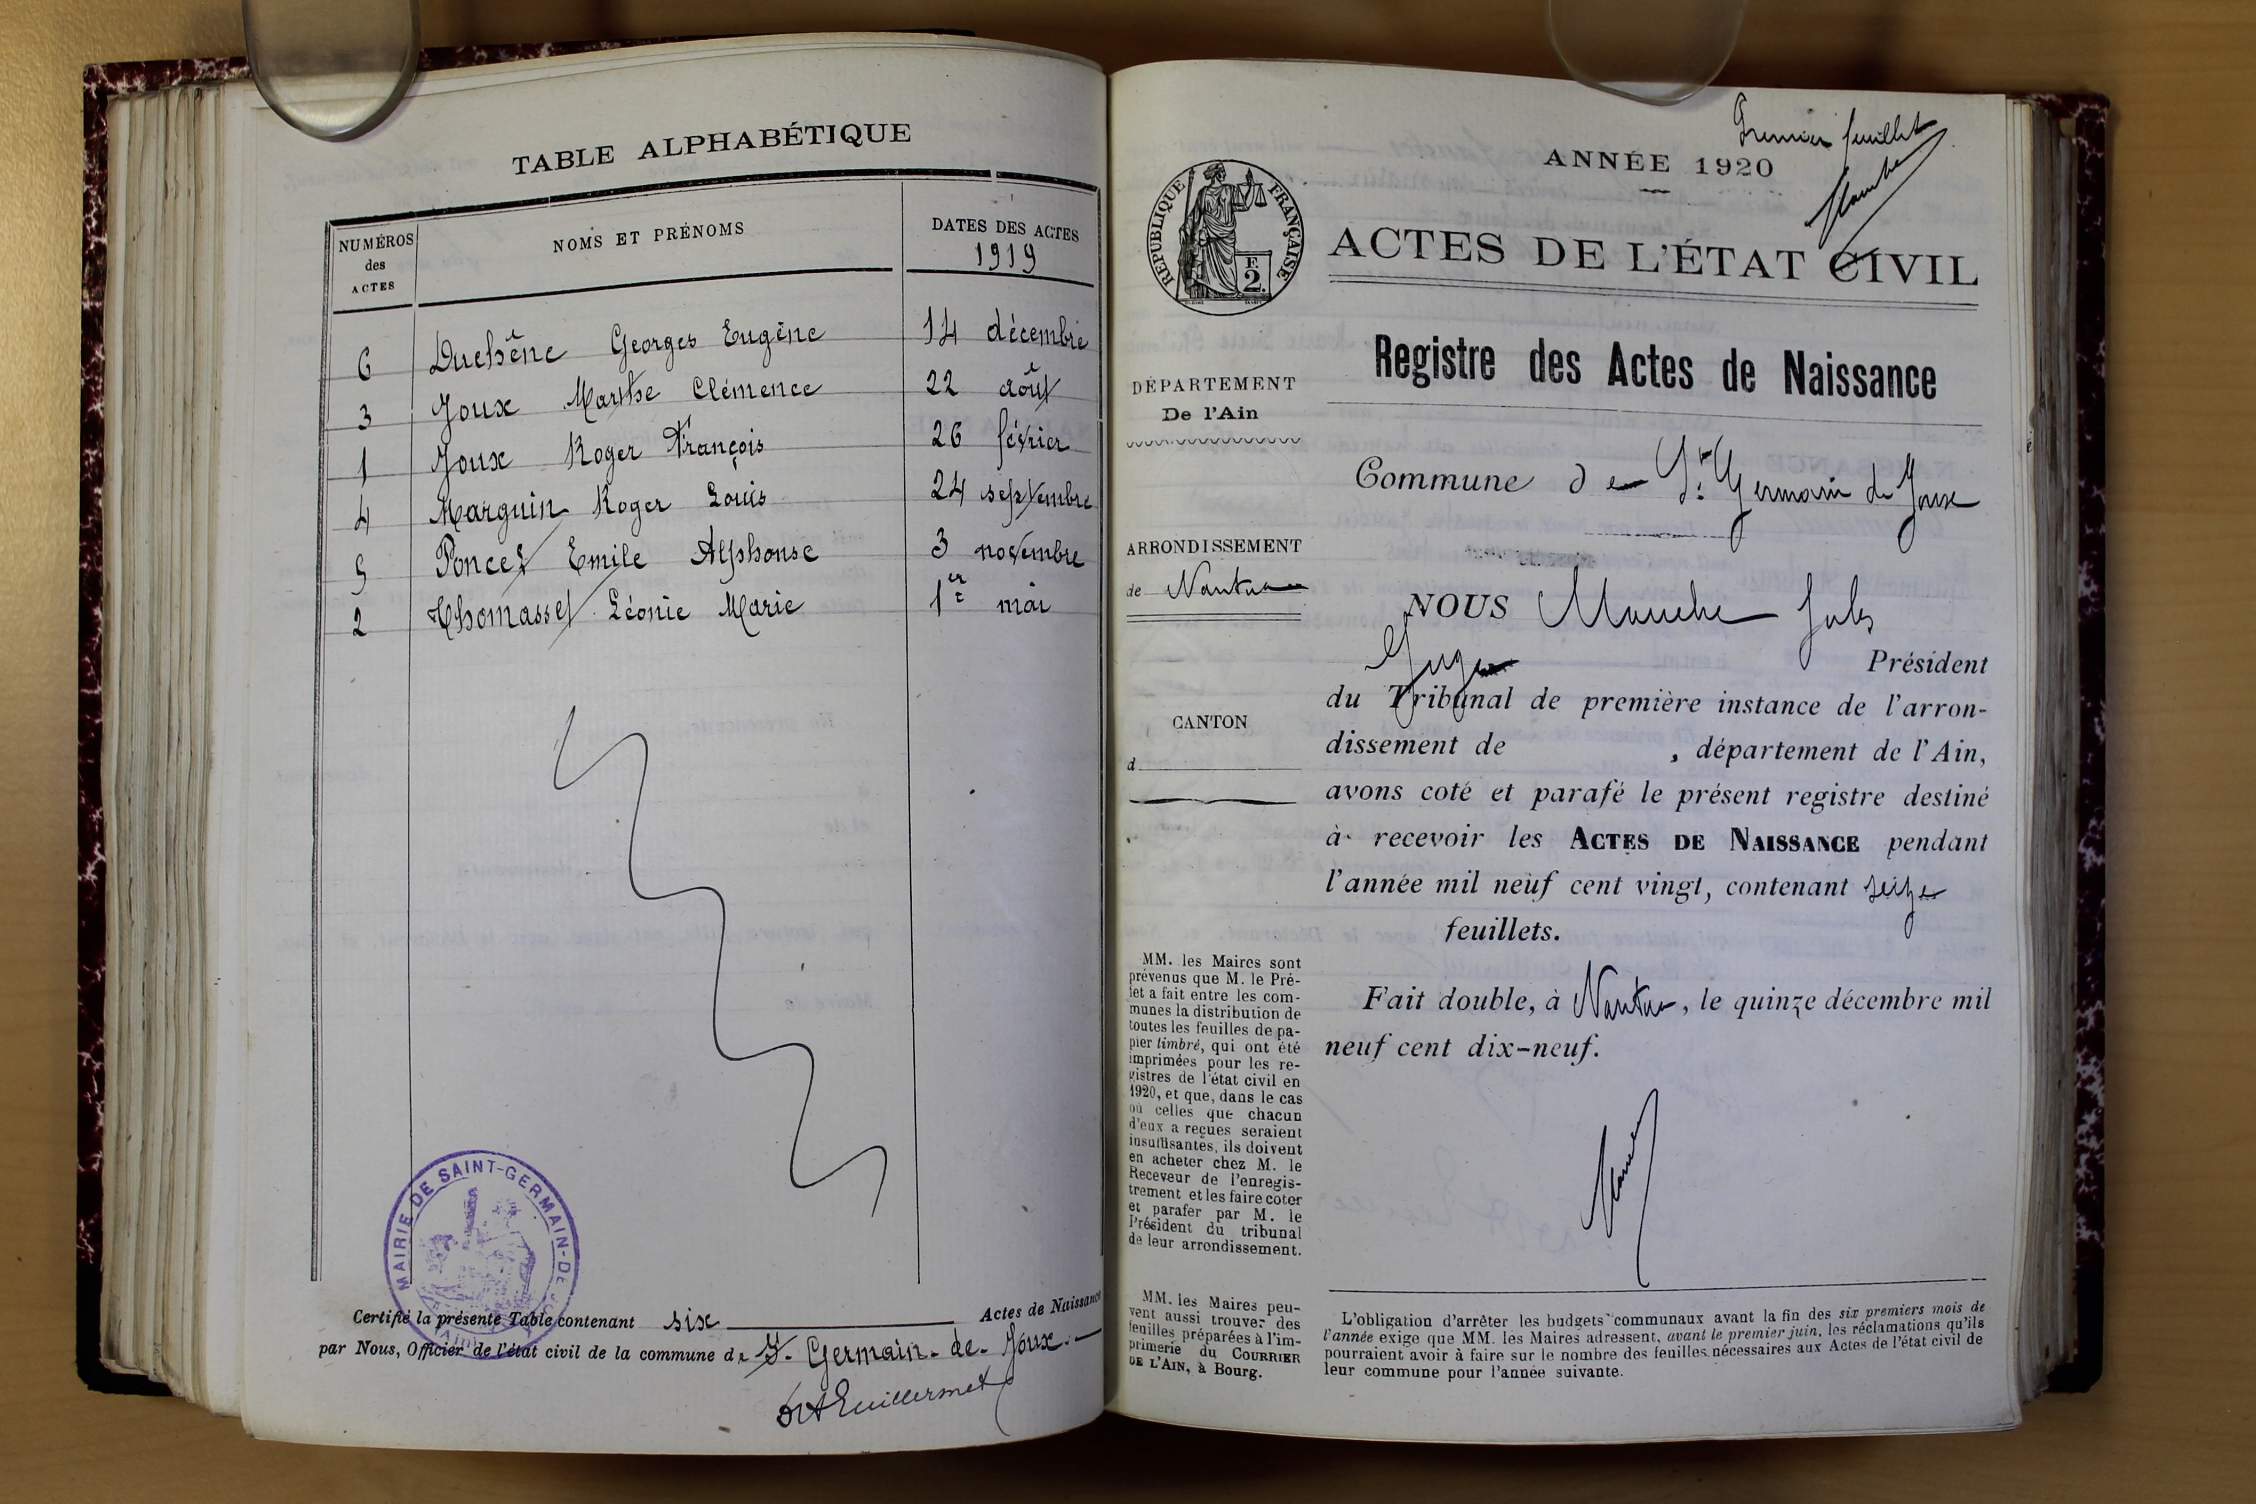 TABLE ALPHABÉTIQUE
NUMÉROS des ACTES
NOMS ET PRÉNOMS
DATES DES ACTES
1919
6 Duchêne Georges Eugène 14 décembre
3 Joux Marthe Clémence 22 août
1 Joux Roger François 26 février
4 Marguin Roger Louis 24 septembre
5 Poncet Emile Alphonse 3 novembre
2 Thomasset Léonie Marie 1er mai
MAIRIE DE SAINT-GERMAIN-DE-JOUX
(Ain)
Certifié la présente Table contenant six Actes de Naissance
par Nous, Officier de l'état civil de la commune de St-Germain-de-Joux.
Guillermet
Premier feuillet
ANNÉE 1920
RÉPUBLIQUE FRANÇAISE
F.
2.
ACTES DE L'ÉTAT CIVIL
Registre des Actes de Naissance
DÉPARTEMENT
De l'Ain
Commune de St Germain de Joux
ARRONDISSEMENT
de Nantua
CANTON
d
NOUS Jules
Juge
Président
du Tribunal de première instance de l'arron-
dissement de , département de l'Ain,
avons coté et parafé le présent registre destiné
à recevoir les ACTES DE NAISSANCE pendant
l'année mil neuf cent vingt, contenant seize
feuillets.
Fait double, à Nantua, le quinze décembre mil
neuf cent dix-neuf.
MM. les Maires sont
prévenus que M. le Pré-
fet a fait entre les com-
munes la distribution de
toutes les feuilles de pa-
pier timbré, qui ont été
imprimées pour les re-
gistres de l'état civil en
1920, et que, dans le cas
où celles que chacun
d'eux a reçues seraient
insuffisantes, ils doivent
en acheter chez M. le
Receveur de l'enregis-
trement et les faire coter
et parafer par M. le
Président du tribunal
de leur arrondissement.
MM. les Maires peu-
vent aussi trouver des
feuilles préparées à l'im-
primerie du COURRIER
DE L'AIN, à Bourg.
L'obligation d'arrêter les budgets communaux avant la fin des six premiers mois de
l'année exige que MM. les Maires adressent, avant le premier juin, les réclamations qu'ils
pourraient avoir à faire sur le nombre des feuilles nécessaires aux Actes de l'état civil de
leur commune pour l'année suivante.